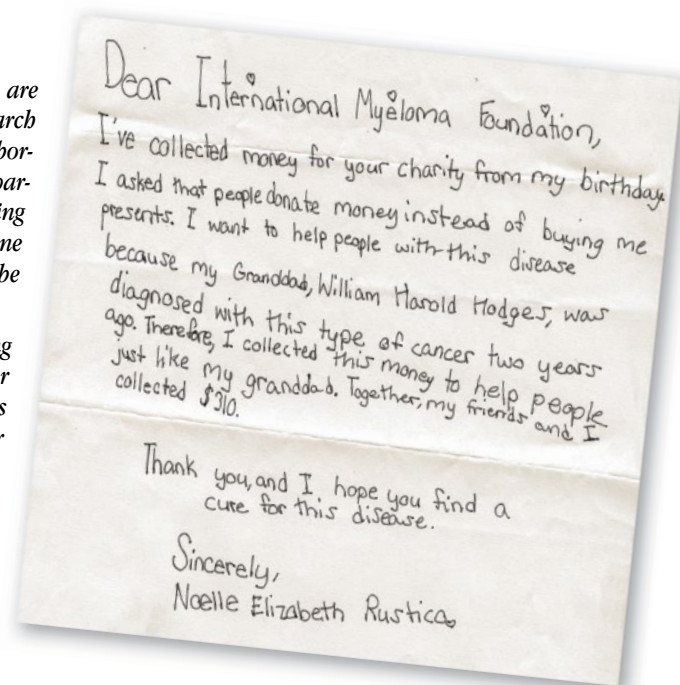 are
arch
bor-
oar-
ing
ne
be
g
r
s
r
Dear International Myeloma Foundation,
I've collected money for your charity from my birthday.
I asked that people donate money instead of buying me
presents. I want to help people with this disease
because my Granddad, William Harold Hodges, was
diagnosed with this type of cancer two years
ago. Therefore, I collected this money to help people
just like my granddad. Together, my friends and I
collected $310.
Thank you, and I hope you find a
cure for this disease.
Sincerely,
Noelle Elizabeth Rustica